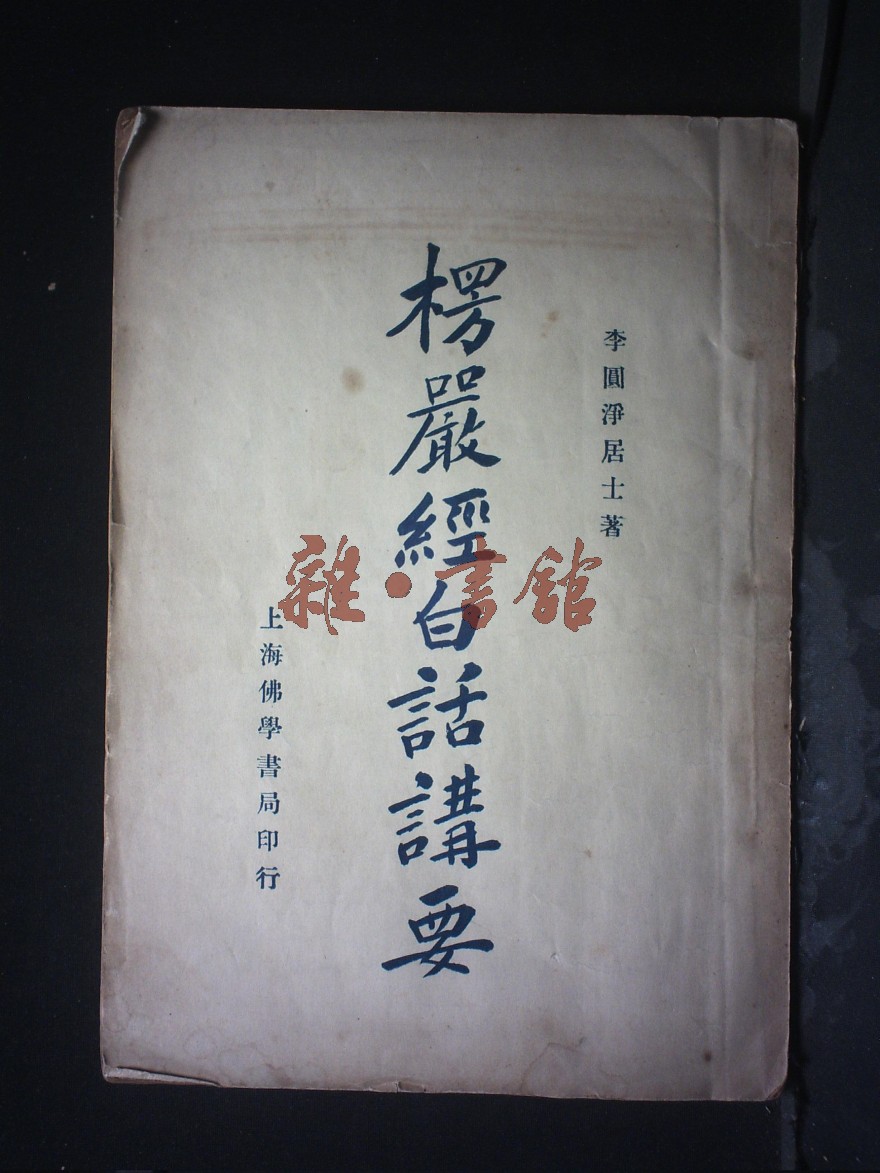 李圓淨居士著
楞嚴經白話講要
上海佛學書局印行
雜·書館